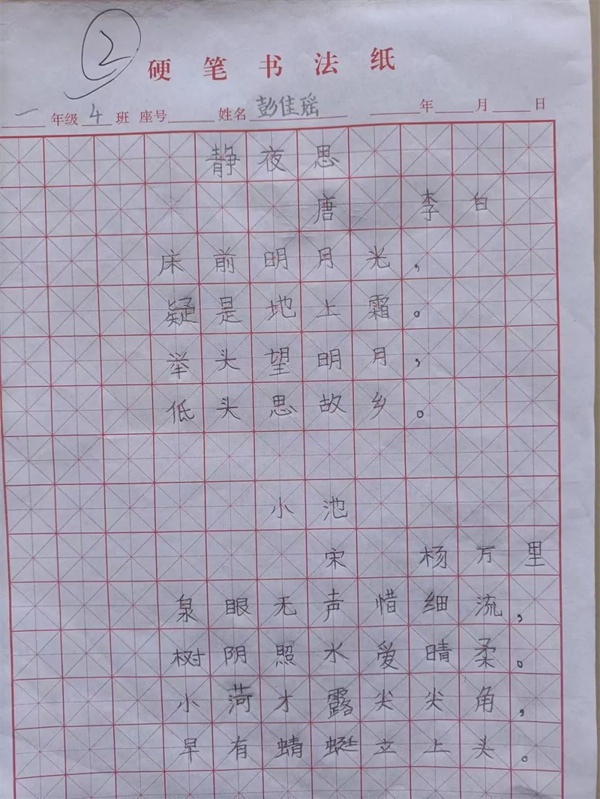 2
硬笔书法纸
一年级 4班 座号 姓名 彭佳瑶 年 月 日
静夜思
唐 李白
床前明月光,
疑是地上霜。
举头望明月,
低头思故乡。
小池
宋 杨万里
泉眼无声惜细流,
树阴照水爱晴柔。
小荷才露尖尖角,
早有蜻蜓立上头。